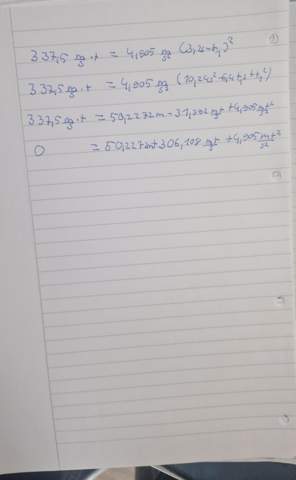 337,5 m/s · t = 4,905 m/s² (3,2s-t₁)²
337,5 m/s · t = 4,905 m/s² (10,24s²-6,4t₁s+t₁²)
337,5 m/s · t = 50,2272m-31,392 m/s t + 4,905 m/s² t²
0 = 50,227m+306,108 m/s t + 4,905 m/s² t²